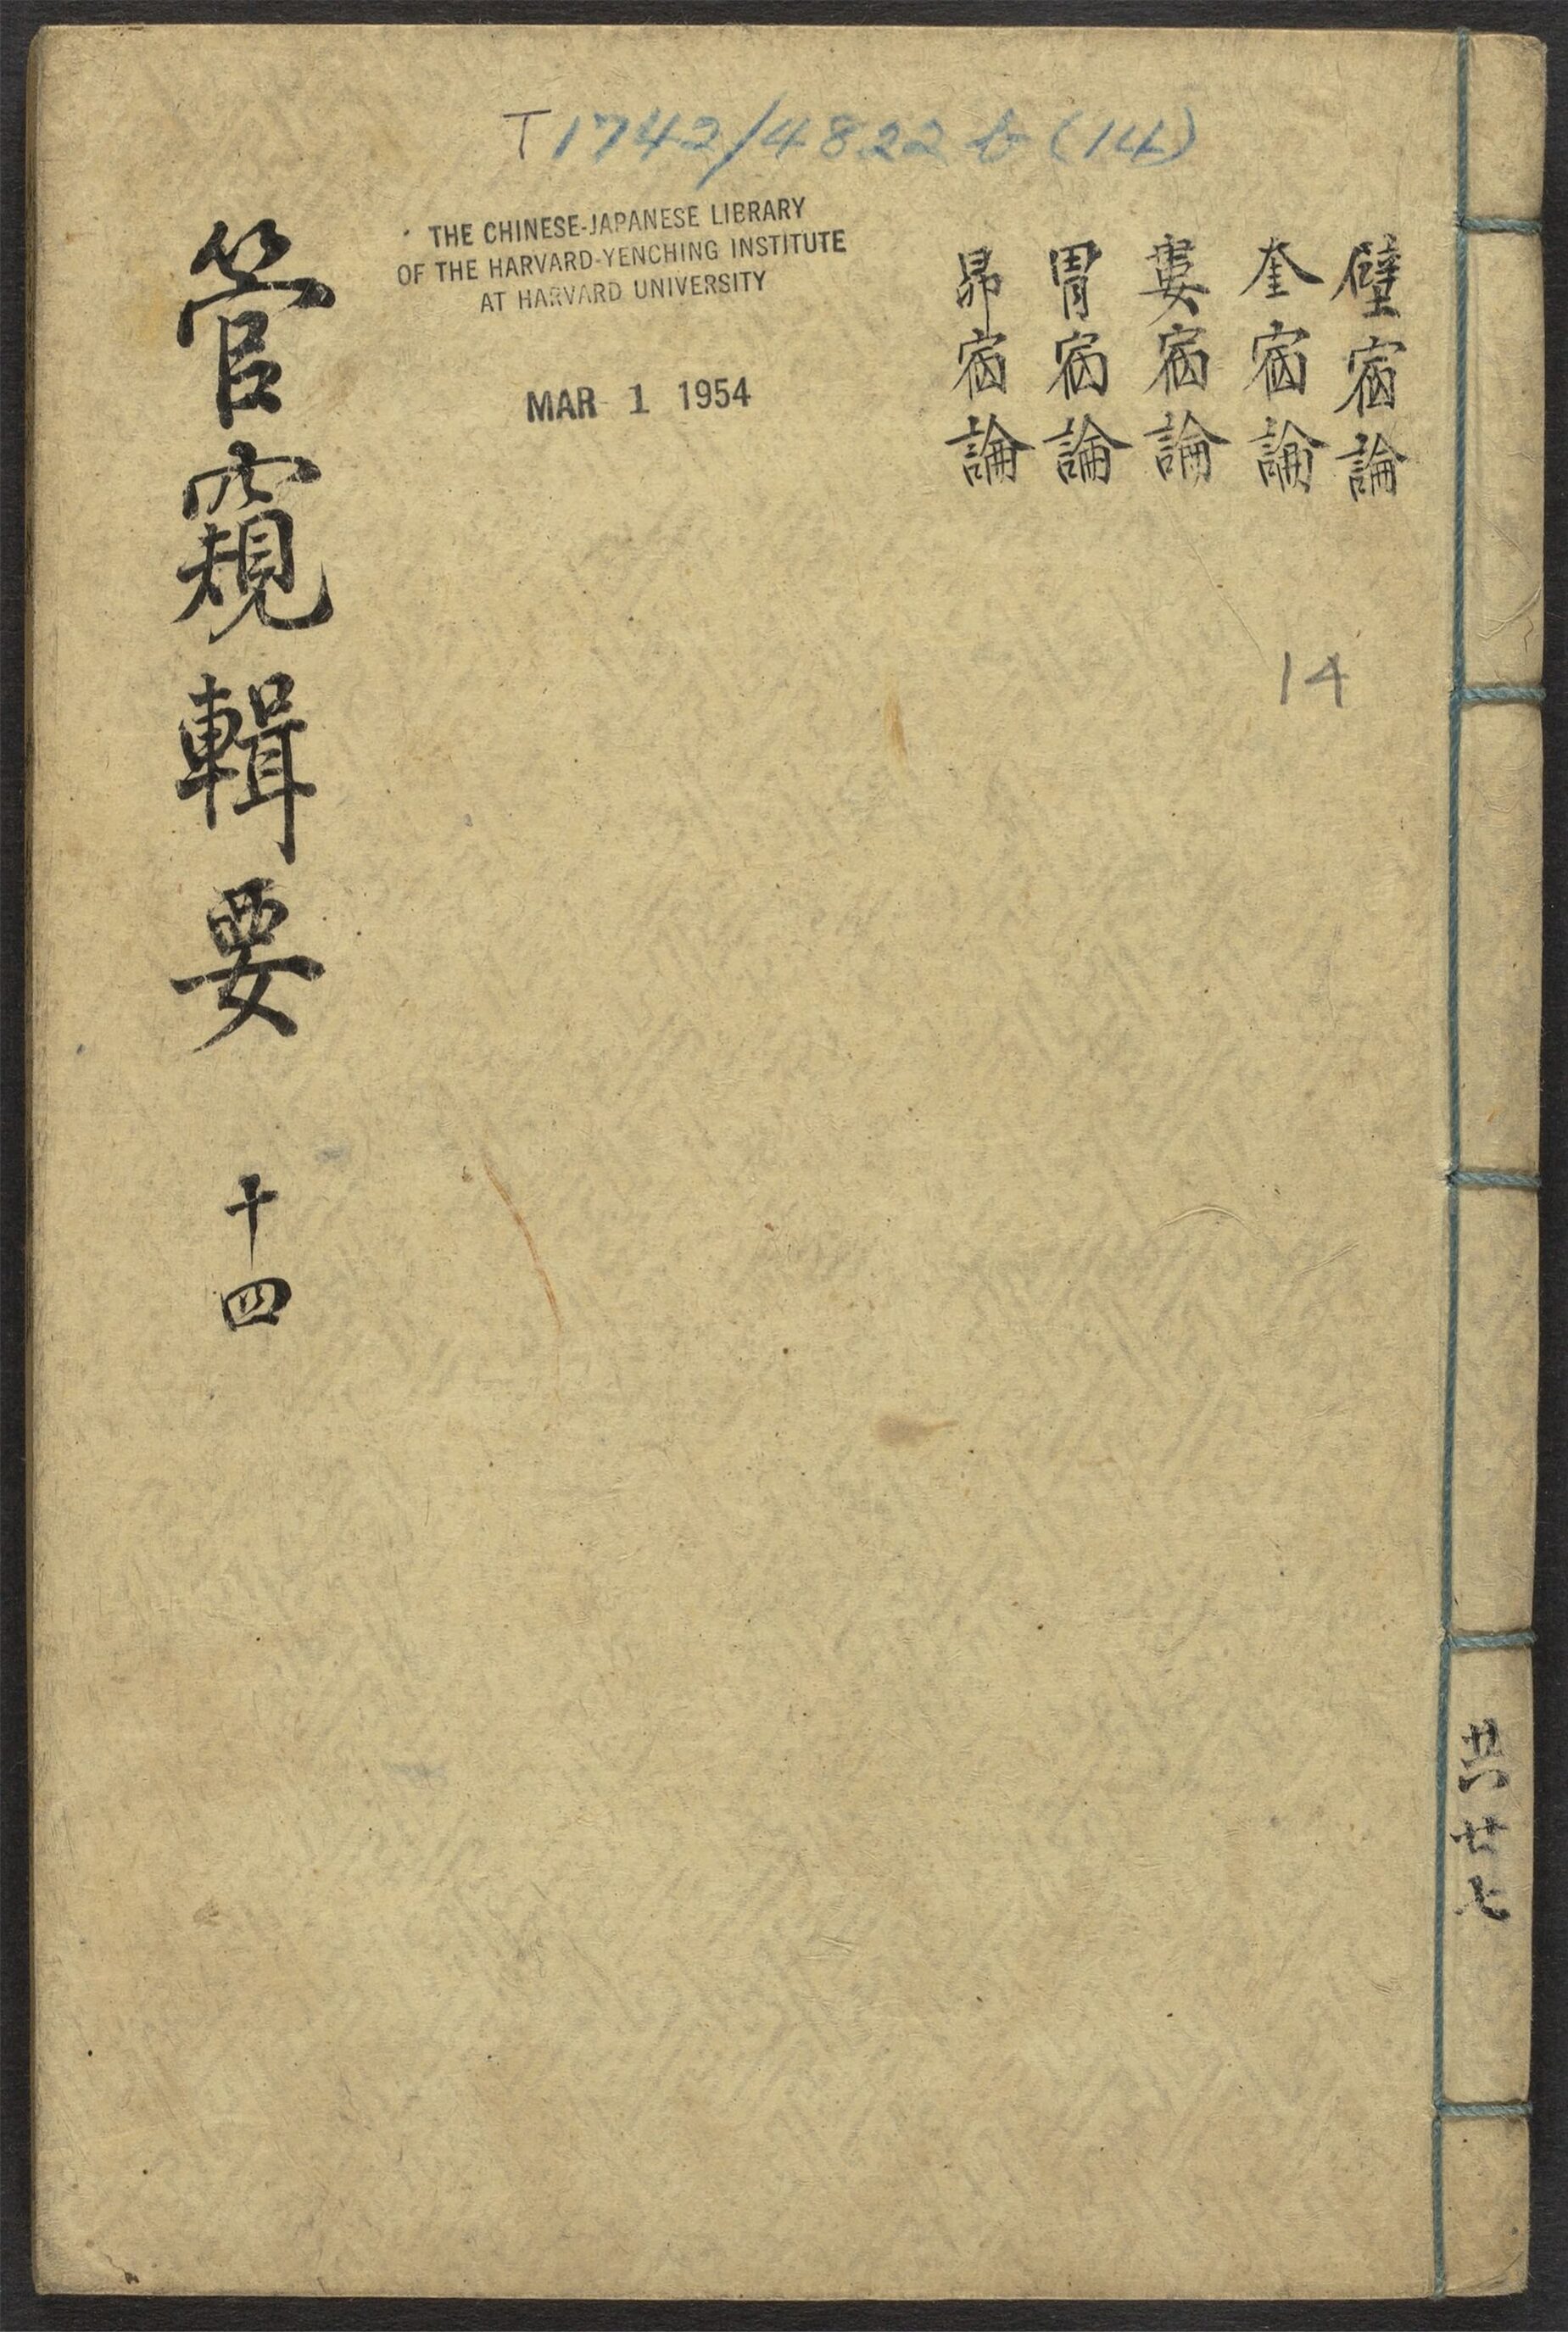 T1742/4822 b (14)
THE CHINESE-JAPANESE LIBRARY
OF THE HARVARD-YENCHING INSTITUTE
AT HARVARD UNIVERSITY
MAR 1 1954
壁宿論
奎宿論
婁宿論
胃宿論
昴宿論
14
管窺輯要 十四
共廿七